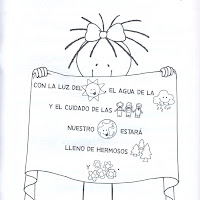 CON LA LUZ DEL EL AGUA DE LA
Y EL CUIDADO DE LAS
NUESTRO ESTARÁ
LLENO DE HERMOSOS
Y